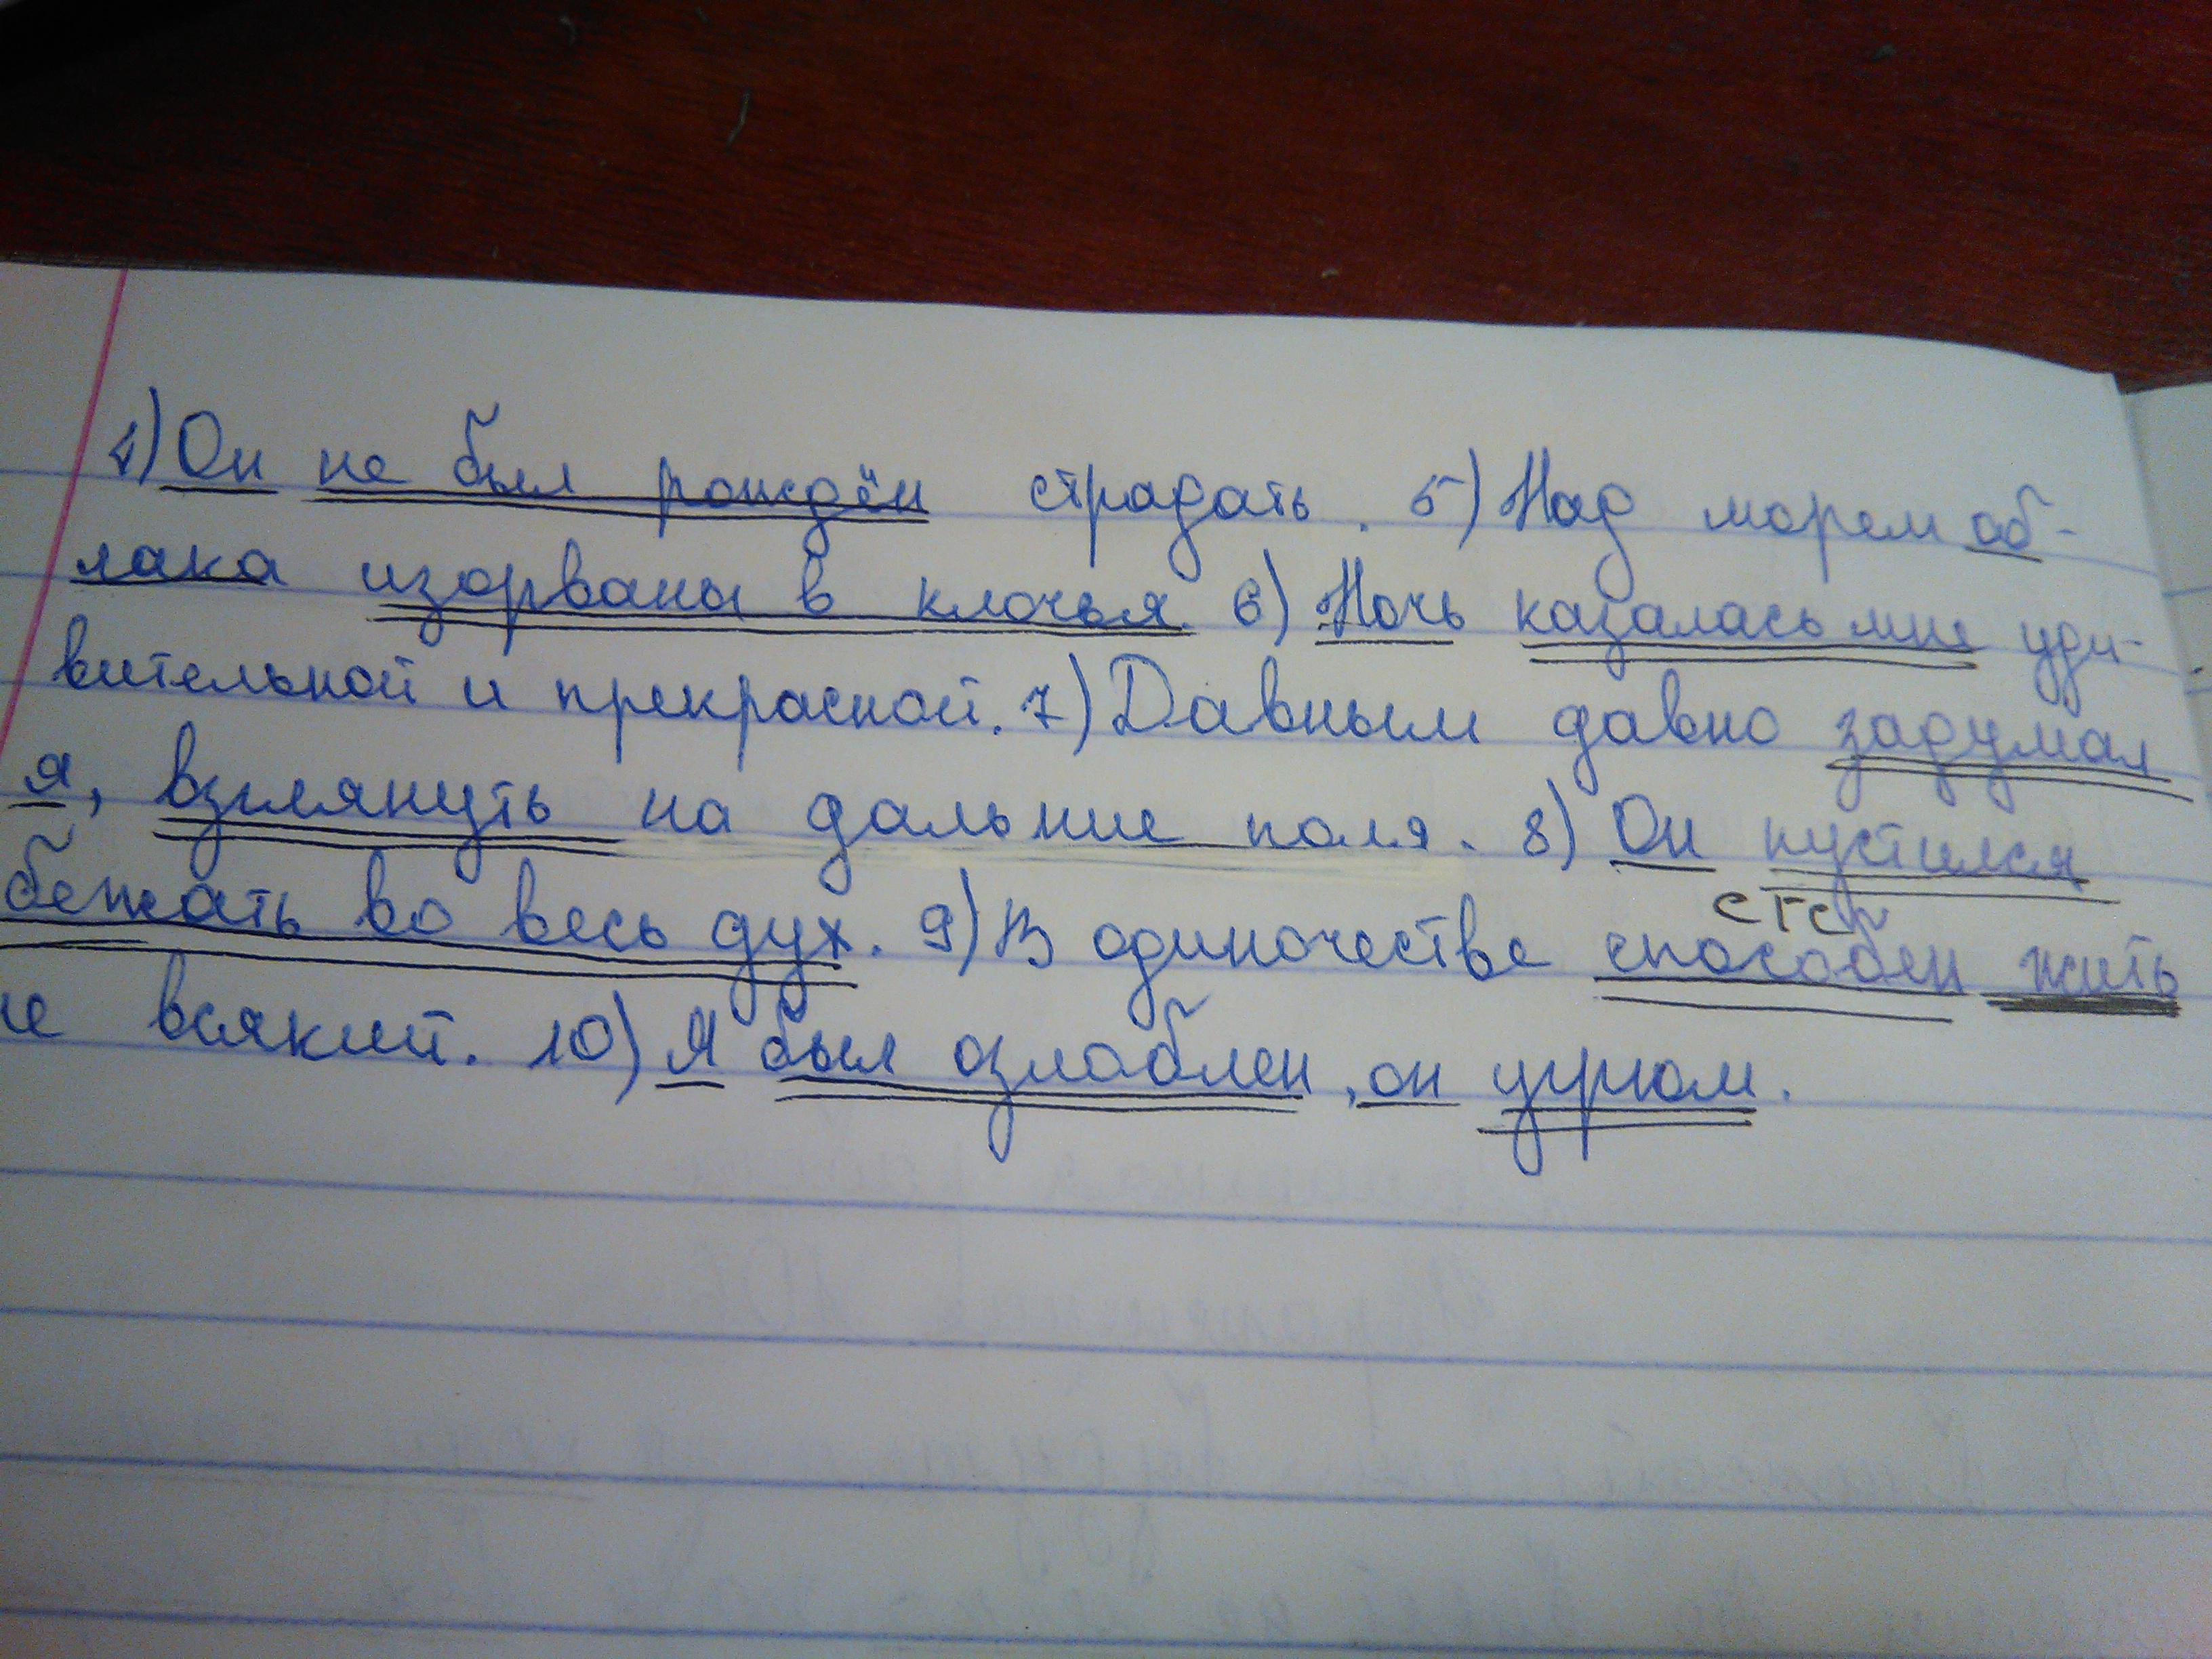 4) Он не был рождён страдать. 5) Над морем об-
лака изорваны в клочья. 6) Ночь казалась мне уди-
вительной и прекрасной. 7) Давным давно задумал
я, взглянуть на дальние поля. 8) Он пустился
бежать во весь дух. 9) В одиночестве способен жить
сгс
не всякий. 10) Я был озлоблен, он угрюм.